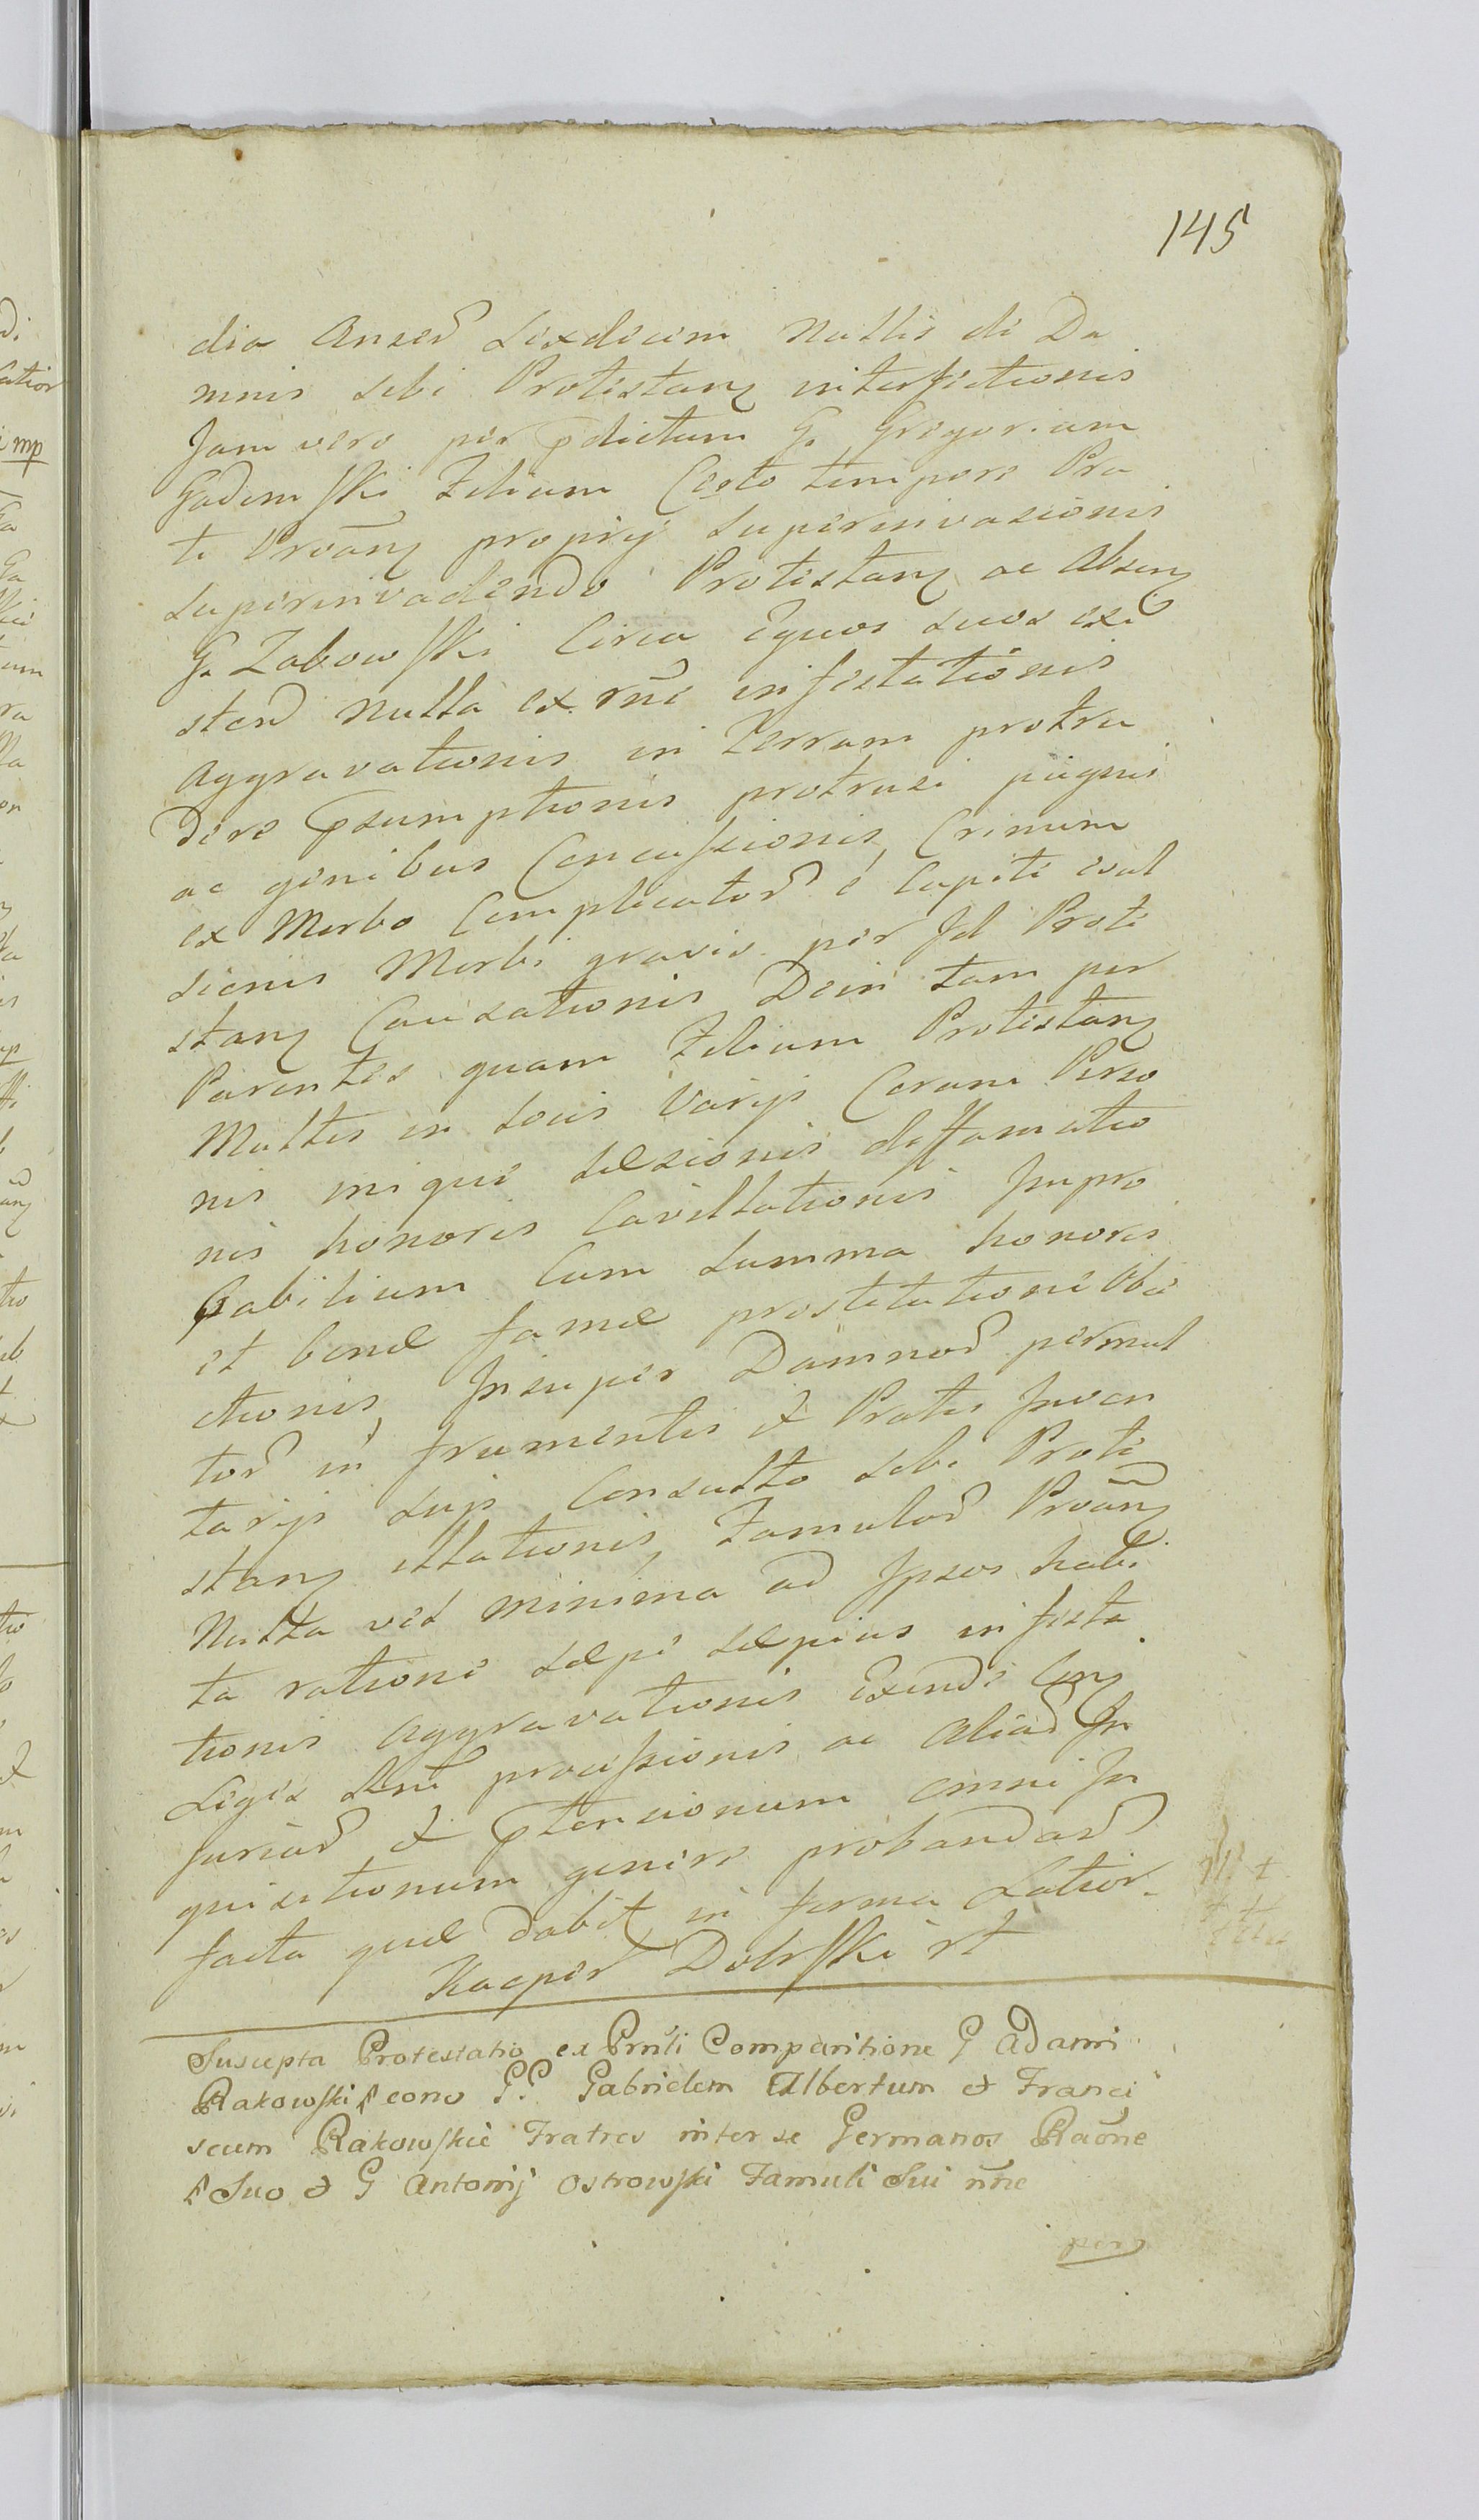 145
dia Ansed Sexdecim Nullis di Da
mnis sibi Protestanz interfectionis
Jam vero per pdictum G. Gregorium
Gadomski Filium Certo tempore Pra
ti Proanz proprij superinvasionis
superinvadendo Protestanz ac Absenz
G. Zabowski Circa Equos suos exi
stend Nulla ex rne infestationis
Aggravationis in Terram protru
dere psumptionis protrusi pugnis
ac genibus Concussionis, Crinium
ex Morbo Complicator è Capite evul
sionis Morbi gravis per Id Prote
stanz Causationis Dein tam per
Parentes quam Filium Protestanz
Multis in Locis Varijs Coram Perso
nis inique Læsionis diffamatio
nis honoris Cavillationis Impro
babilium Cum summa honoris
et bonæ famæ prostitutione Obie
ctionis, Insuper Damnor permul
tor in frumentis et Pratis Inven
tarijs suis Consulto sibi Prote
stanz illationis, Famulor Proanz
Nulla vel minima ad Ipsos habi
ta ratione sæpe sæpius infesta
tionis Aggravationis Exinde Cenz
Legis Sene processionis ac Aliar In
juriar et ptensionum omni In
quisitionum genere probandar
facta quæ dabit in forma Latior.
Kacper Dobrski rt
Suscepta Protestatio ex Prnti Comparitione G Adami
Rakowski cono G.G. Gabrielem Albertum et Franci
scum Rakowskie Fratres inter se Germanos Raõne
Suo et G Antonij Ostrowski Famuli Sui nne
pers